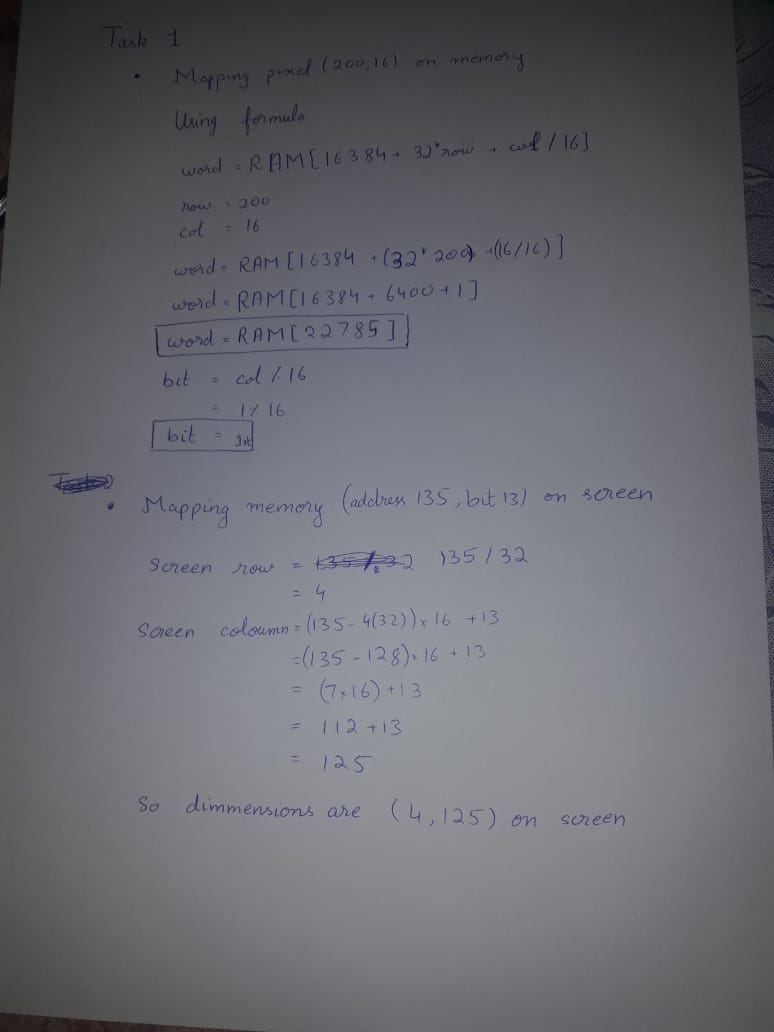 Task 1
• Mapping pixel (200,16) on memory
Using formula
word = RAM[16384 + 32*row + col / 16]
row = 200
col = 16
word = RAM [16384 + (32*200) + (16/16)]
word = RAM[16384 + 6400 + 1]
word = RAM[22785]
bit = col % 16
= 1 % 16
bit = 1st
• Mapping memory (address 135, bit 13) on screen
Screen row = 135 / 32
= 4
Screen coloumn = (135 - 4(32)) x 16 + 13
= (135 - 128) x 16 + 13
= (7x16) + 13
= 112 + 13
= 125
So dimmensions are (4,125) on screen